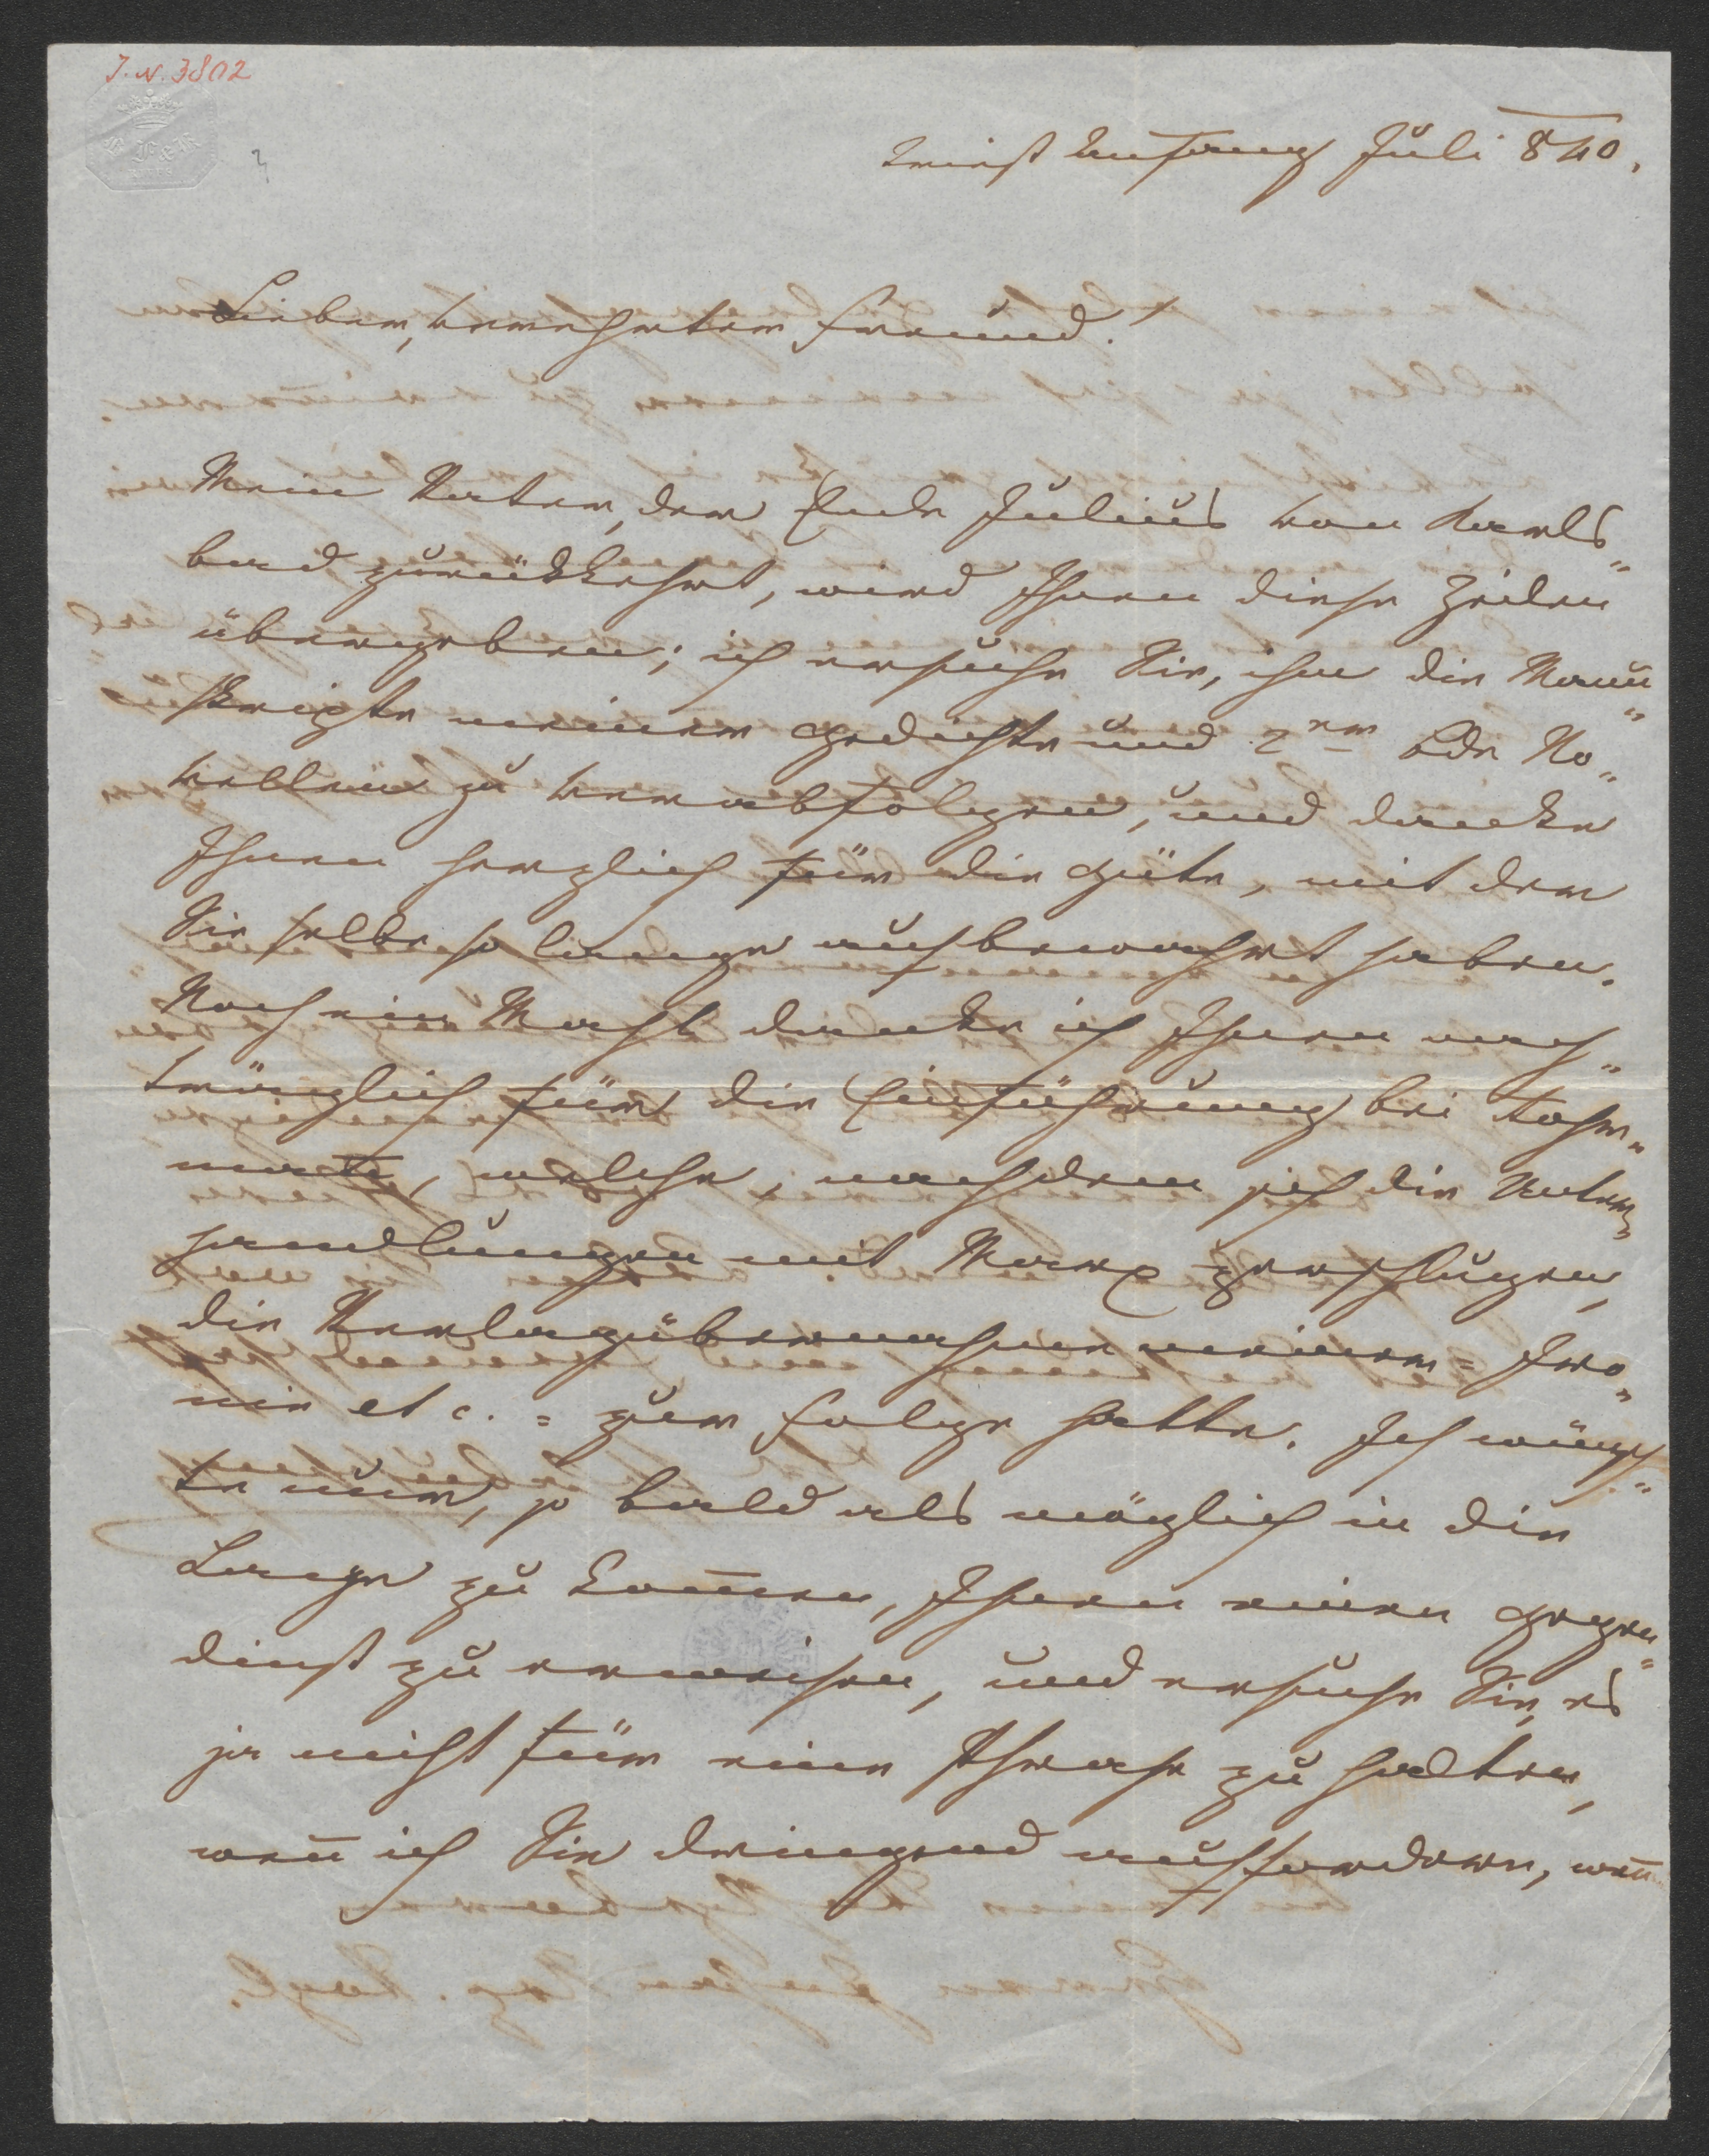 J.N. 3802
Triest Anfang Juli 840.
Lieber, verehrter Freund!
Mein Vater, der Ende Julius von Karls„
bad zurückkehrt, wird Ihnen diese Zeilen
übergeben; ich ersuche Sie, ihm die Manu„
skripte meiner Gedichte und 2er Bde No„
vellen zu verabfolgen, und danke
Ihnen herzlich für die Güte, mit der
Sie selbe so lange aufbewahrt haben.
Noch ein Mahl danke ich Ihnen nach„
träglich für die Einführung bei
welche, nachdem sich die Unter„
handlungen mit Marx zerschlugen,
die Verlagsübernahme meiner = Iro„
nie etc. = zur Folge hatte. Ich wünsch„
te nur, so bald als möglich in die
Lage zu kom̄en, Ihnen einen Gegen„
dienst zu erweisen, und ersuche Sie, es
ja nicht für eine Phrase zu halten,
wen̄ ich Sie dringend auffordere, wen̄